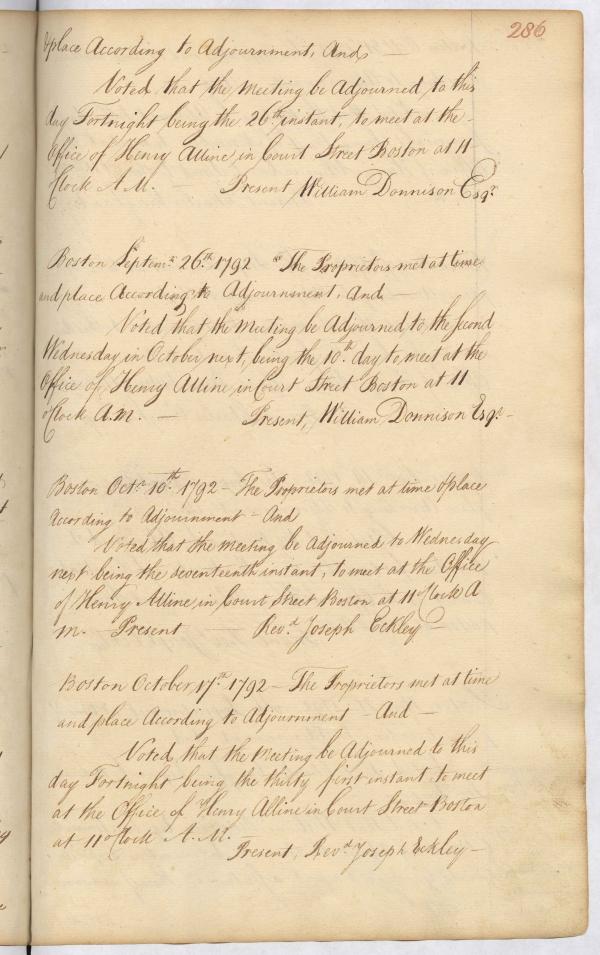 286
& place According to Adjournment, And —
Voted, that the meeting be Adjourned to this
day Fortnight being the 26th instant, to meet at the
Office of Henry Alline in Court Street Boston at 11
Clock A M. — Present William Donnison Esqr.
Boston Septemr. 26th. 1792 The Proprietors met at time
and place According to Adjournment, And —
Voted that the Meeting be Adjourned to the second
Wednesday in October next, being the 10th. day to meet at the
Office of Henry Alline in Court Street Boston at 11
oClock A.M. — Present, William Donnison Esqr. —
Boston Octr. 10th. 1792 — The Proprietors met at time & place
According to Adjournment — And
Voted that the meeting be Adjourned to Wednesday
next being the seventeenth instant, to meet at the Office
of Henry Alline in Court Street Boston at 11 oClock A
M. — Present — Revd. Joseph Eckley —
Boston October 17th. 1792 — The Proprietors met at time
and place According to Adjournment — And —
Voted, that the Meeting be Adjourned to this
day Fortnight being the thirty first instant to meet
at the Office of Henry Alline in Court Street Boston
at 11 oClock A. M.
Present, Revd. Joseph Eckley —